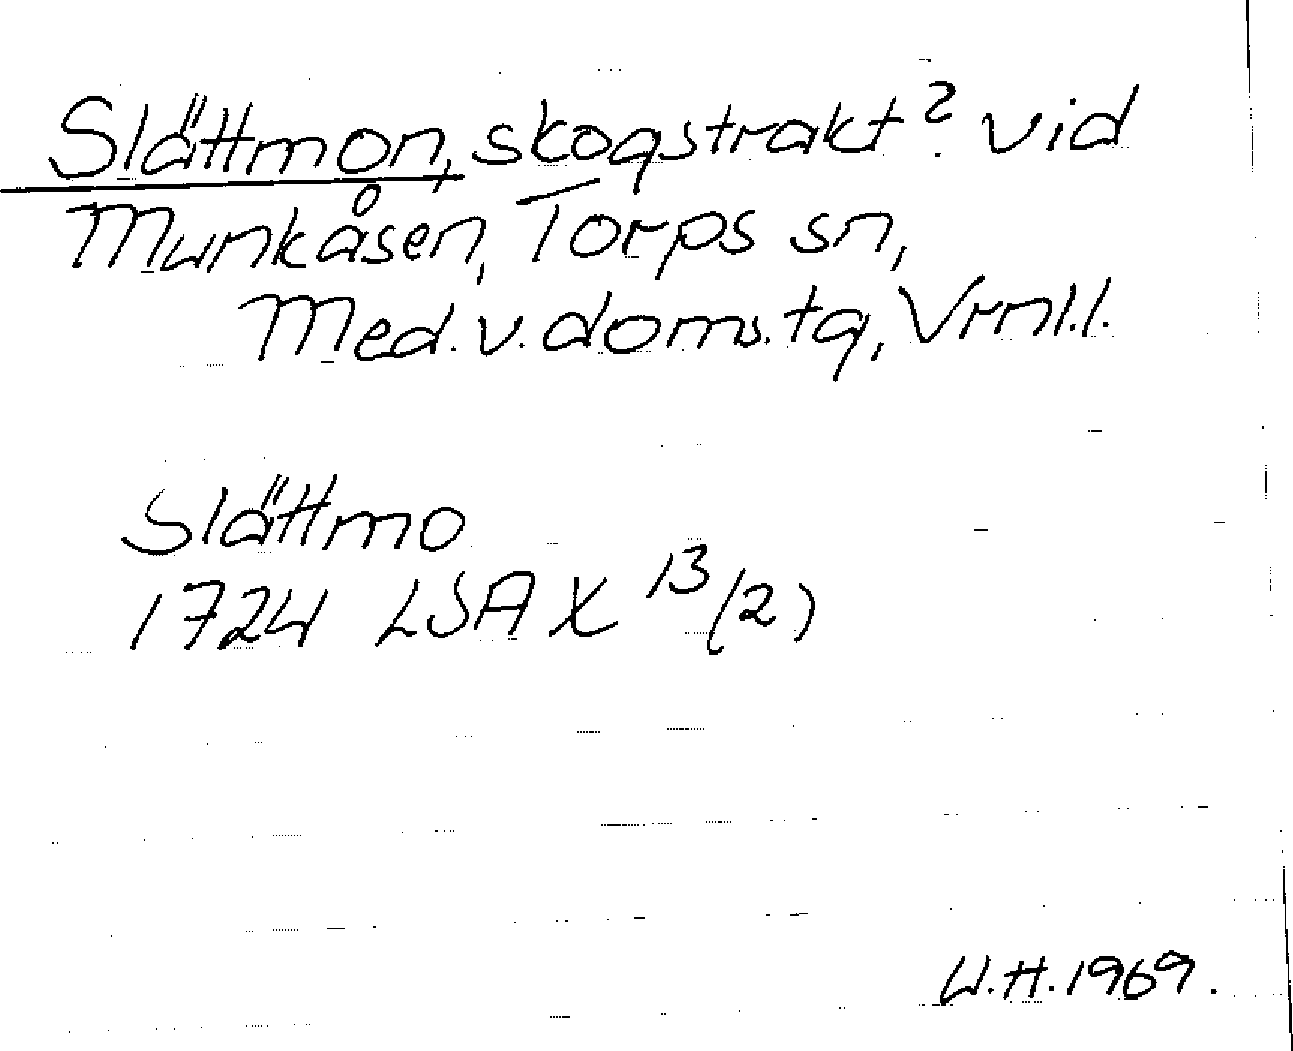 Slättmon, skogstrakt? vid
Munkåsen, Torps sn,
Med. v. doms. tg, Vrnl.l.
Slättmo
1724 LSA X 13/(2)
U.H. 1969.